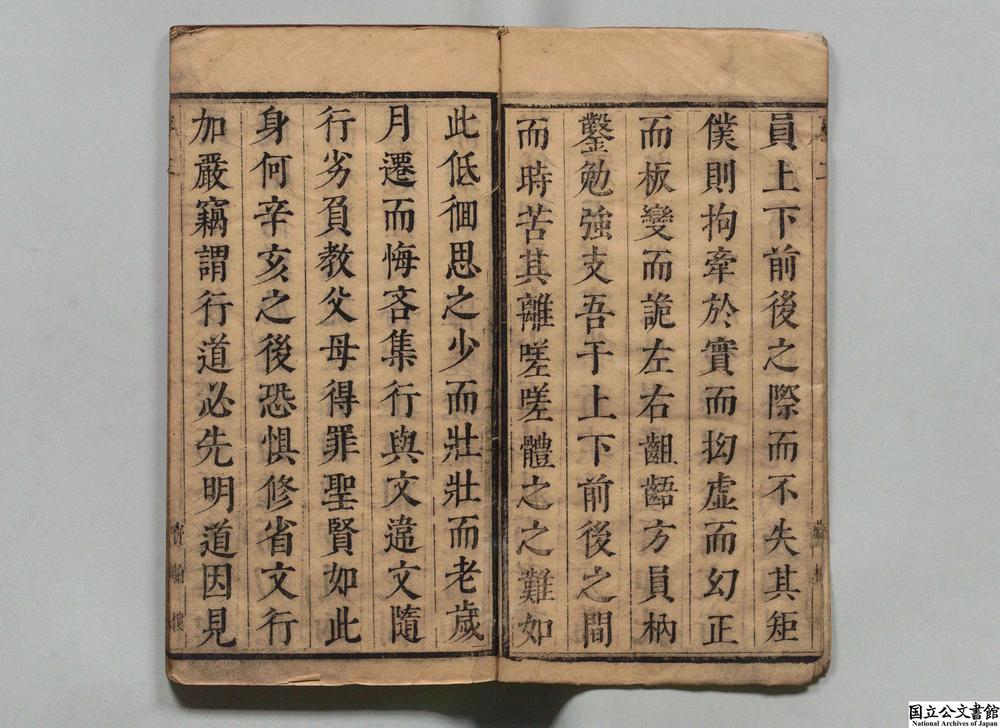 員上下前後之際而不失其矩
僕則拘牽於實而拗虛而幻正
而板變而詭左右齟齬方員枘
鑿勉強支吾于上下前後之間
而時苦其離嗟嗟體之之難如
此低徊思之少而壯壯而老歲
月遷而悔吝集行與文違文隨
行劣負教父母得罪聖賢如此
身何辛亥之後恐惧修省文行
加嚴竊謂行道必先明道因見
国立公文書館
National Archives of Japan